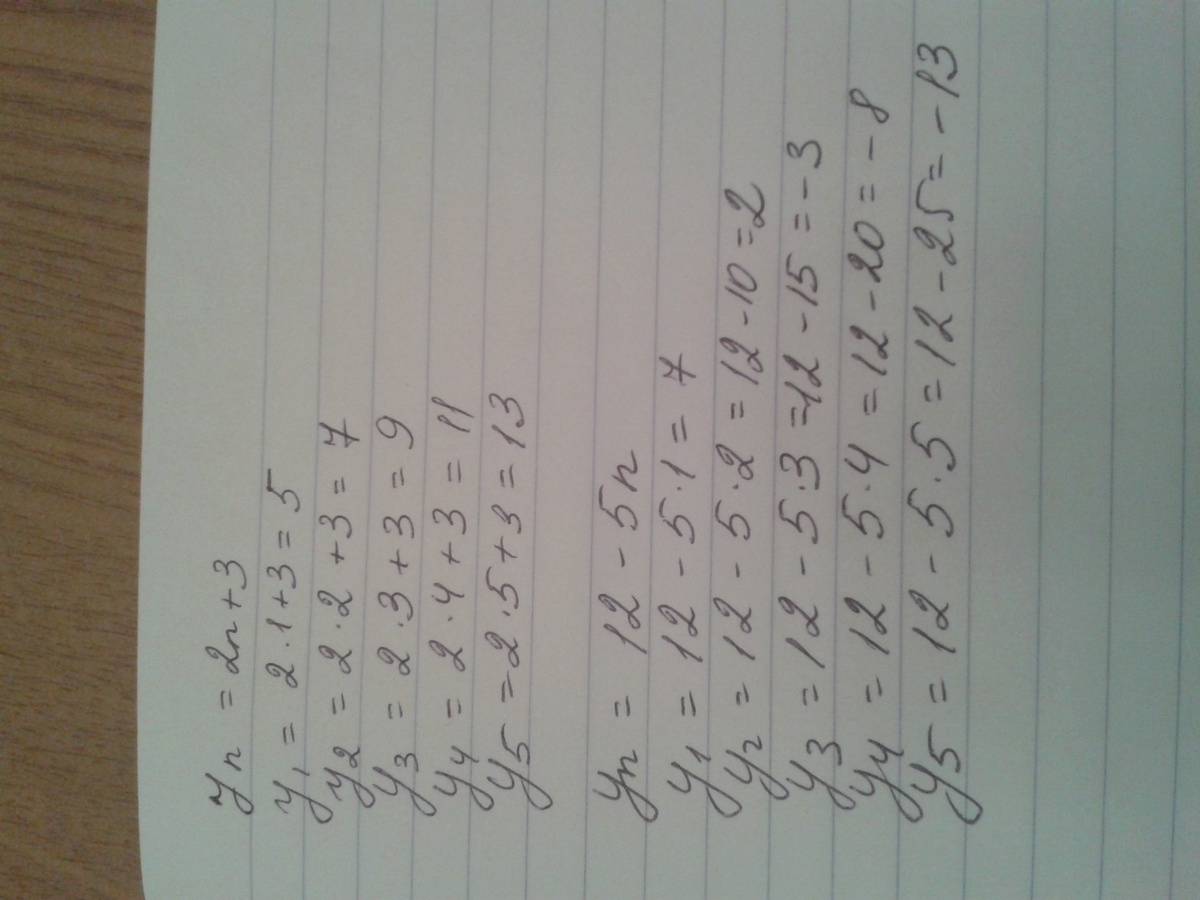 yn = 2n+3
y1 = 2·1+3=5
y2 = 2·2+3=7
y3 = 2·3+3=9
y4 = 2·4+3=11
y5 =2·5+3=13
yn = 12-5n
y1 = 12-5·1=7
y2 =12-5·2=12-10=2
y3 =12-5·3=12-15=-3
y4 =12-5·4=12-20=-8
y5 =12-5·5=12-25=-13